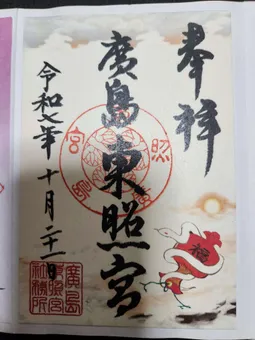 奉祥
廣島東照宮
令和七年十月二十一日
東照宮
廣島
東照宮
社務所
福